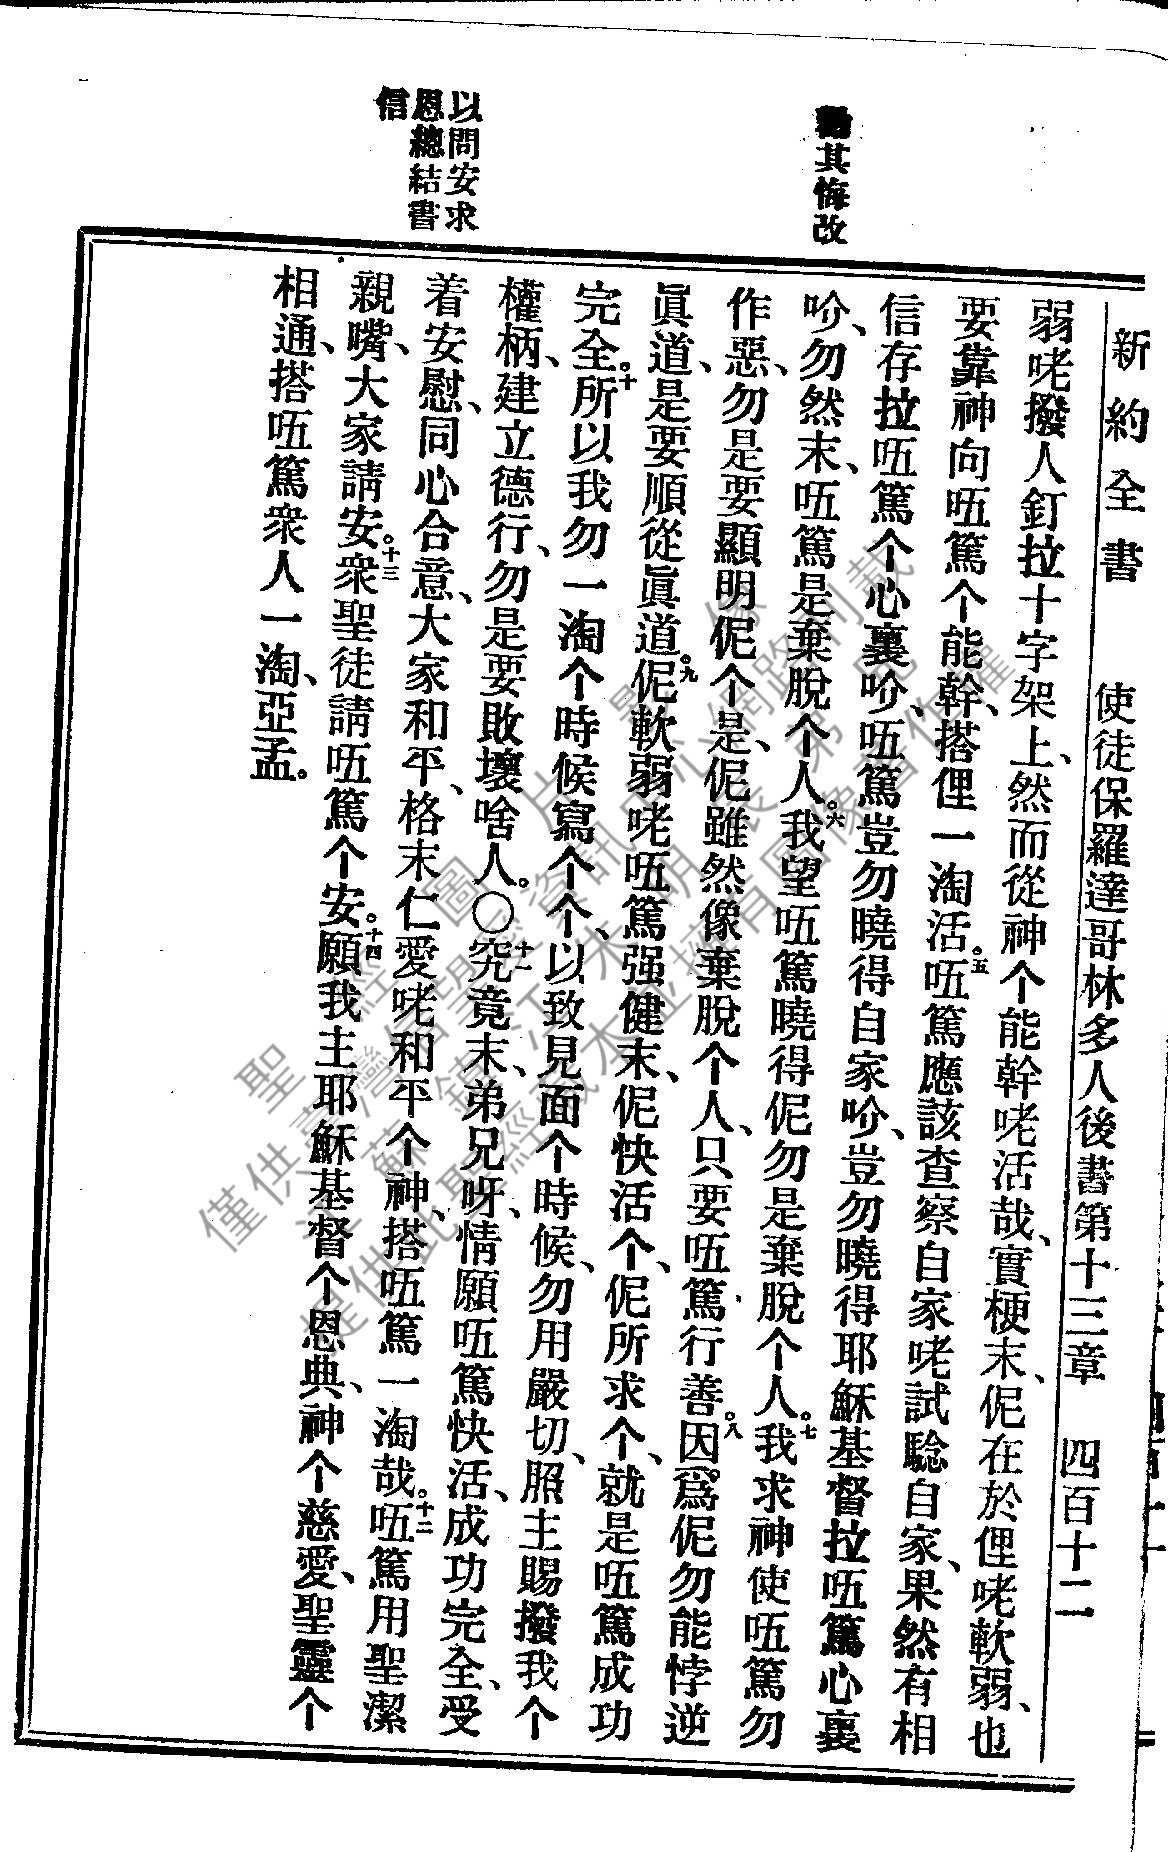 新約全書　使徒保羅達哥林多人後書第十三章　四百十二
勸其悔改
以問安求
恩總結書
信
弱咾撥人釘拉十字架上、然而從神个能幹咾活哉、實梗末、伲在於俚咾軟弱、也
要靠神向唔篤个能幹、搭俚一淘活。五唔篤應該查察自家咾試騐自家、果然有相
信存拉唔篤个心裏吤、唔篤豈勿曉得自家吤、豈勿曉得耶穌基督拉唔篤心裏
吤、勿然末、唔篤是棄脫个人。六我望唔篤曉得伲勿是棄脫个人。七我求神使唔篤勿
作惡、勿是要顯明伲个是、伲雖然像棄脫个人、只要唔篤行善。八因爲伲勿能悖逆
眞道、是要順從眞道。九伲軟弱咾唔篤强健末、伲快活个、伲所求个、就是唔篤成功
完全。十所以我勿一淘个時候寫个个、以致見面个時候、勿用嚴切、照主賜撥我个
權柄、建立德行、勿是要敗壞啥人。〇十一究竟末、弟兄呀、情願唔篤快活、成功完全、受
着安慰、同心合意、大家和平、格末仁愛咾和平个神、搭唔篤一淘哉。十二唔篤用聖潔
親嘴、大家請安。十三衆聖徒請唔篤个安。十四願我主耶穌基督个恩典、神个慈愛、聖靈个
相通、搭唔篤衆人一淘、亞孟。
聖經圖片影像
僅供臺灣信望愛資訊中心網路刊載
江蘇鎮江木明辰弟兄
提供此聖經藏本並擁有圖像著作權